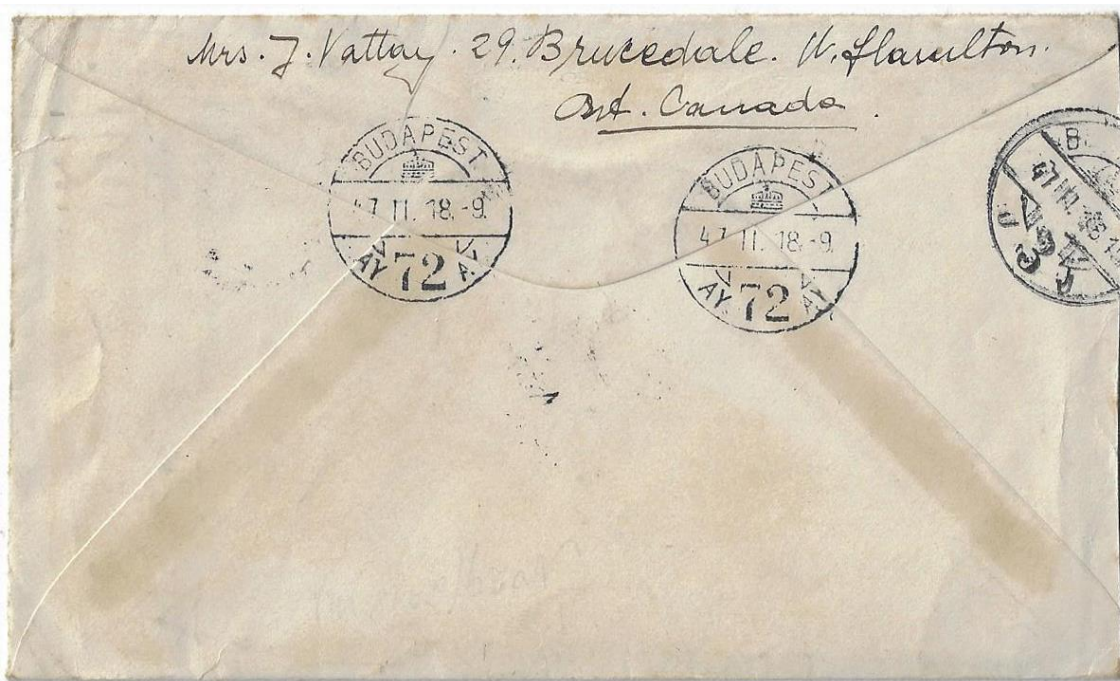 Mrs. J. Vattay. 29. Brucedale. W. Hamilton.
Ont. Canada.
BUDAPEST
47 II. 18.-9.
AY 72 AY
BUDAPEST
47 II. 18.-9.
AY 72 AY
B
47 III. 18.